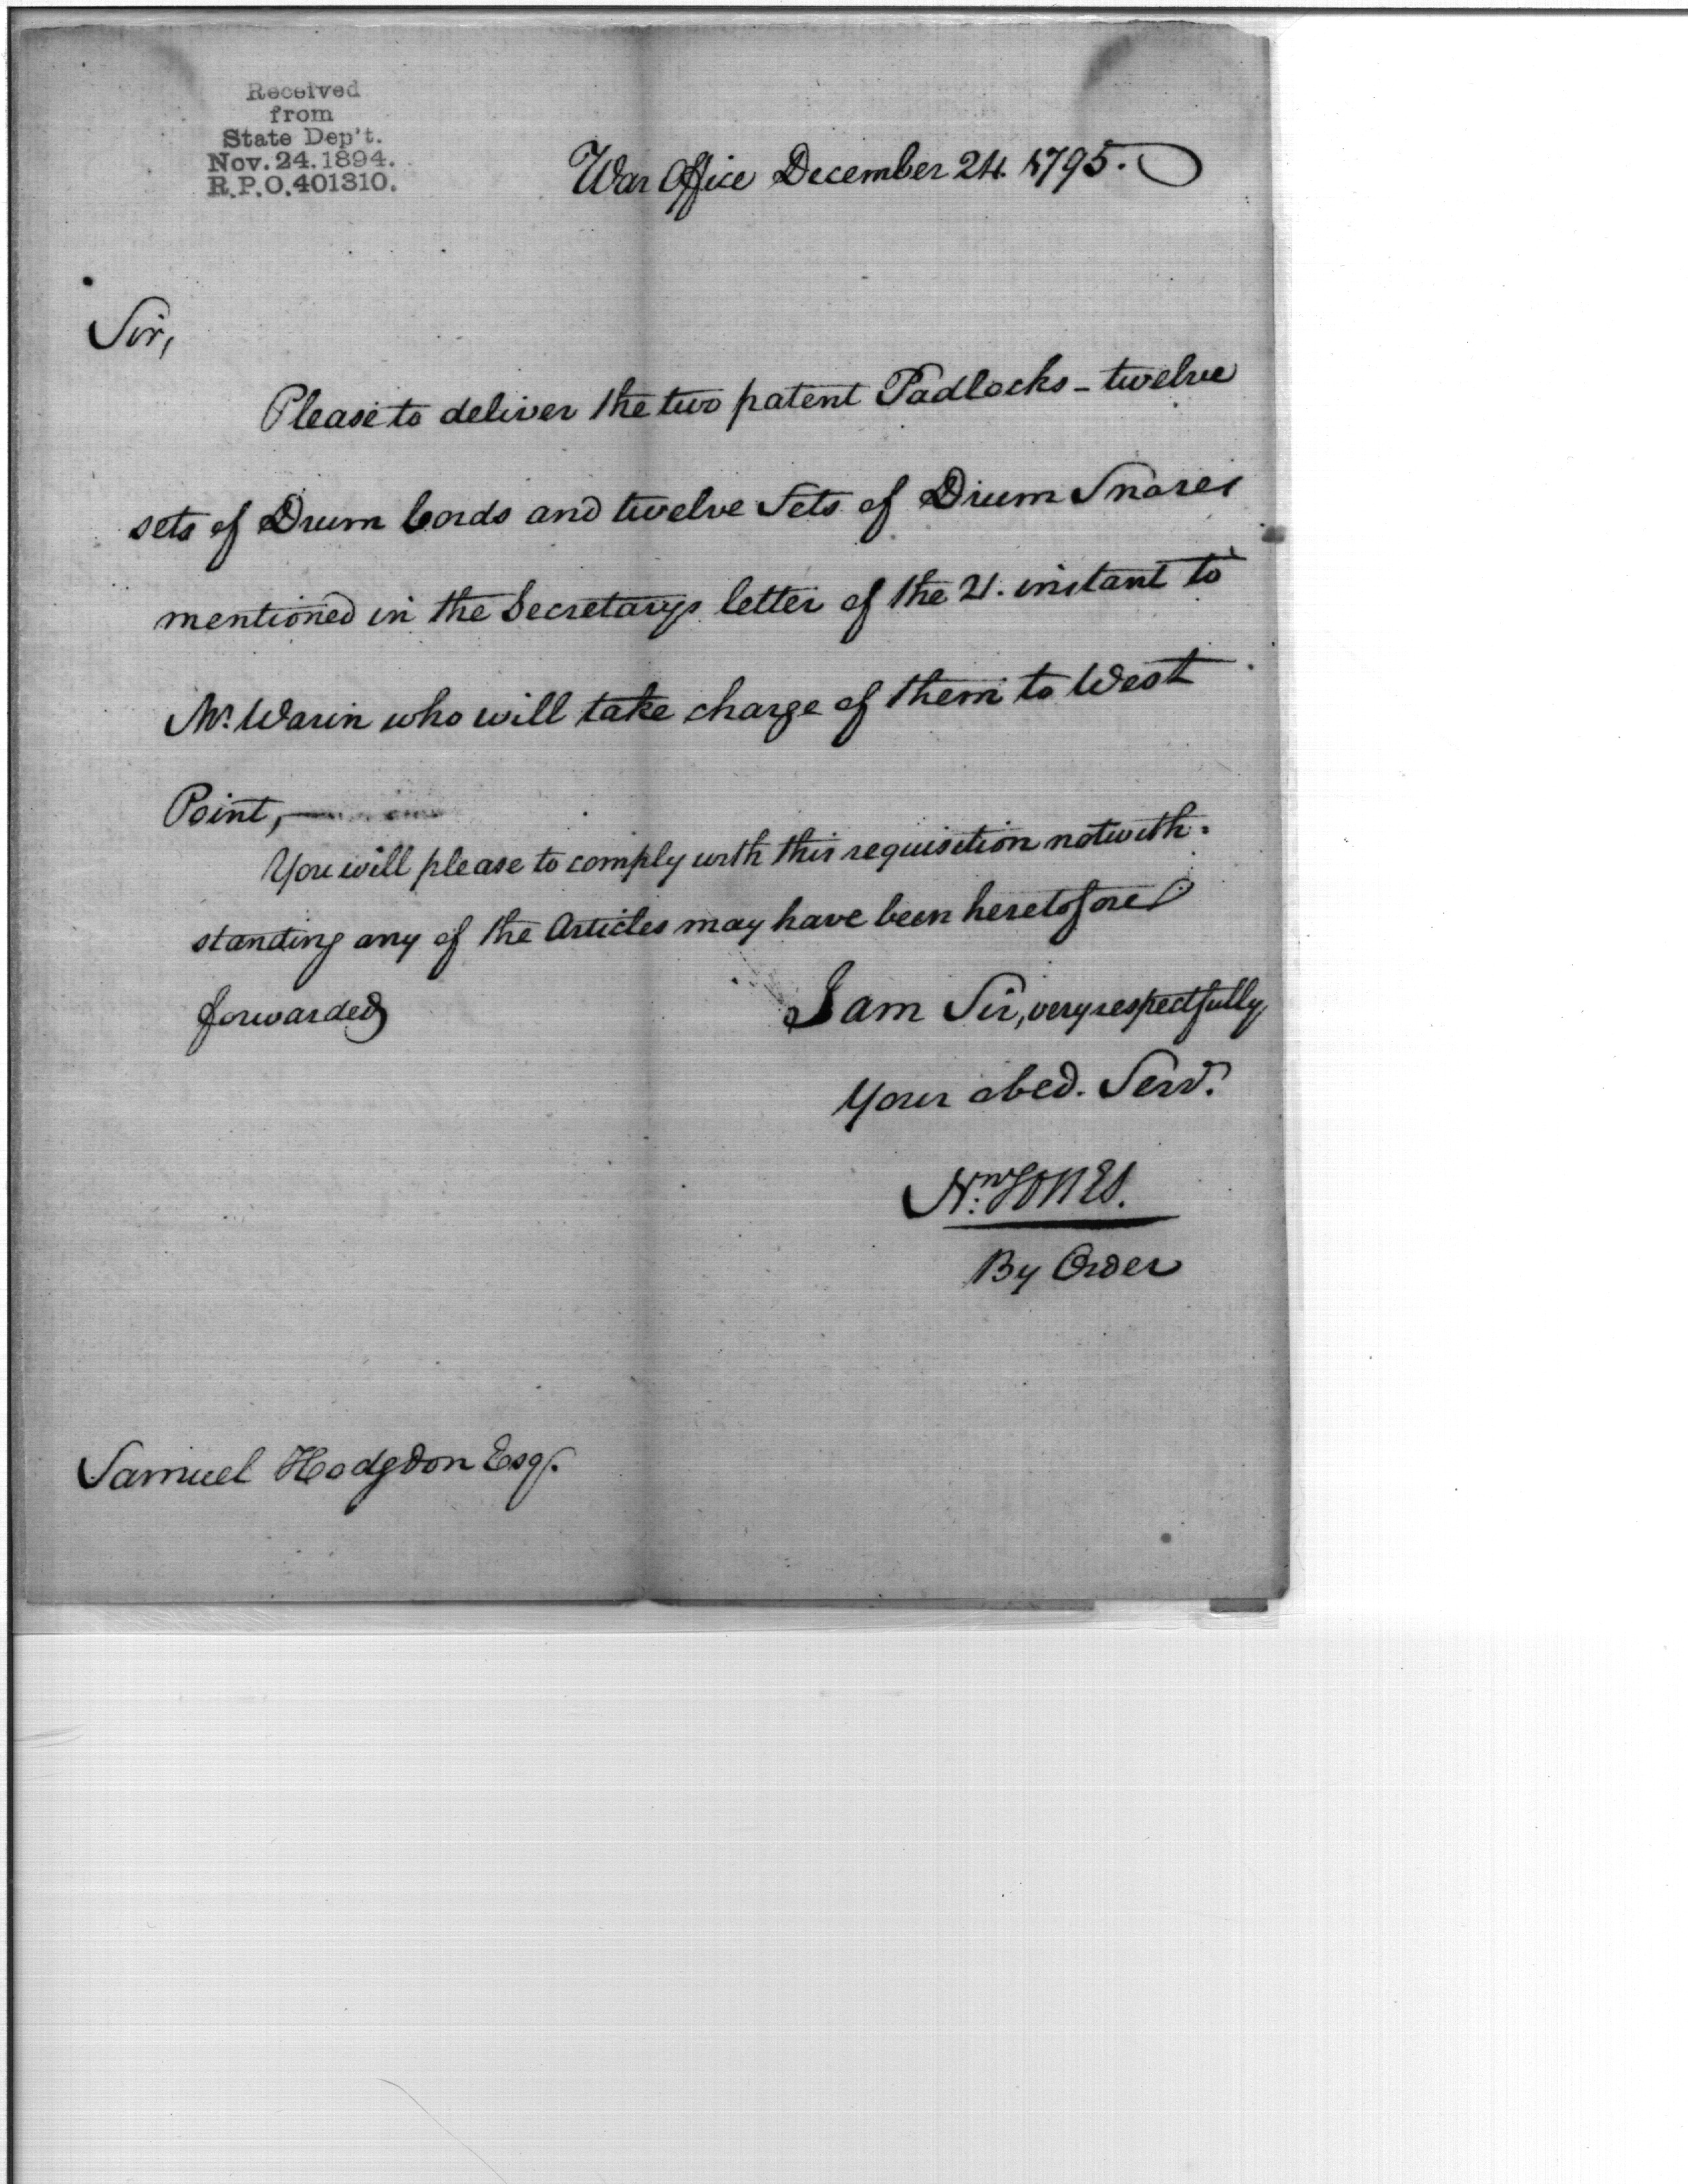 Received
from
State Dep't.
Nov. 24. 1894.
R.P.O. 401310.
War Office December 24. 1795.
Sir,
Please to deliver the two patent Padlocks - twelve
sets of Drum Cords and twelve Sets of Drum Snares
mentioned in the Secretarys letter of the 21. instant to
Mr. Warin who will take charge of them to West
Point,
You will please to comply with this requisition notwith=
standing any of the Articles may have been heretofore
forwarded
I am Sir, very respectfully
Your obed. Serv.
JONES.
By Order
Samuel Hodgdon Esqr.